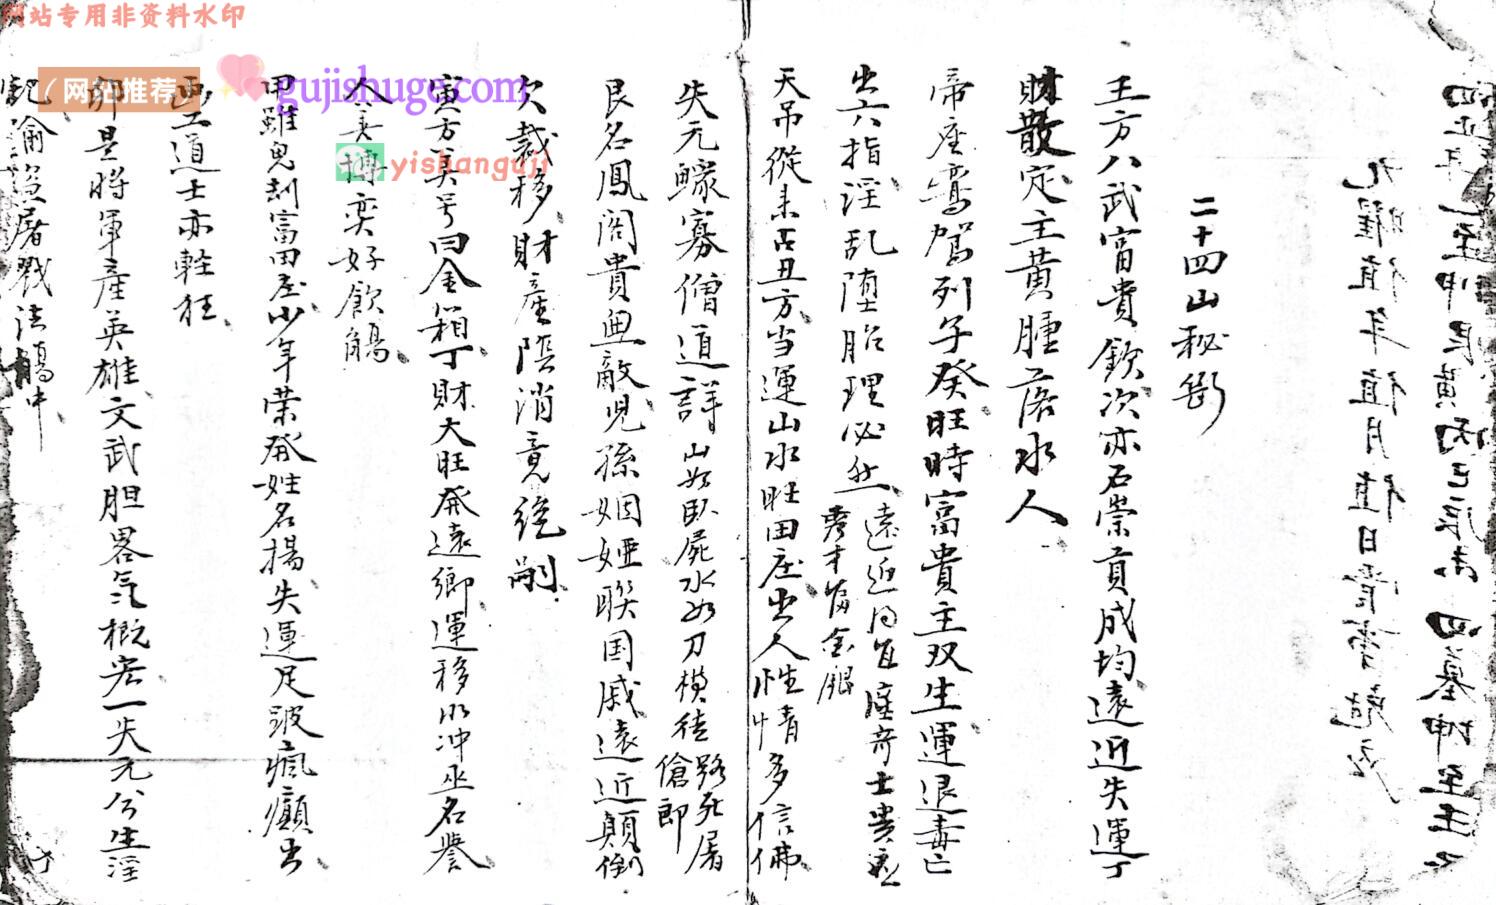 二十四山秘断
壬方八武富貴欽次亦石崇貢成均遠近失運丁
財散定主黄腫落水人
帝座鸞駕列子癸旺時富貴主双生運退毒亡
出六指淫乱堕胎理必然
秀才富金銀
天吊從未占丑方当運山水旺田庄出人性情多信佛
失元鰥寡僧道詳山如臥屍水如刀横徒路死屠
傖郎
艮名鳳阁貴無敵児孫姻婭聯国戚遠近顛倒
欠裁移財産陰消竟绝嗣
寅方箕号曰金箱丁財大旺發遠鄉運移水冲巫名誉
人妻博奕好飲觴
甲雖鬼刼富田庄少年荣發姓名揚失運足跛瘋癲出
画工道士亦輕狂
卯是将軍産英雄文武胆畧气概宏一失元分生淫
屠戮法場中
九曜值年值月值日
网站专用非资料水印
(网站推荐)
gujishuge.com
yishanguji